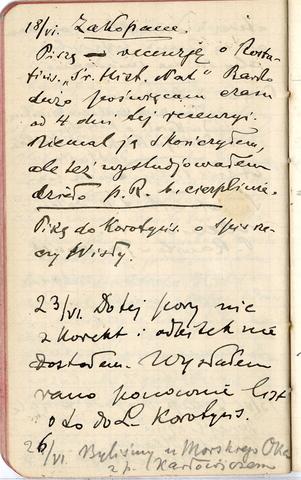 18/VI. Zakopane.
Piszę recenzję o Rosta-
fińs. „Śr. Hist. Nat" Bardzo
dużo poświęcam czasu
od 4 dni tej recenzyi.
Niemal ją skończyłem,
ale też wystudjowałem
dzieło p. R. b. cierpliwie.
Piszę do Korotyńs. o
Wisły.
23/VI. Do tej pory nic
z korekt i odbitek nie
dostałem. Wysłałem
rano ponownie list
o to do L. Korotyńs.
26/VI. Byliśmy u Morskiego Oka
z p. Karłowiczem